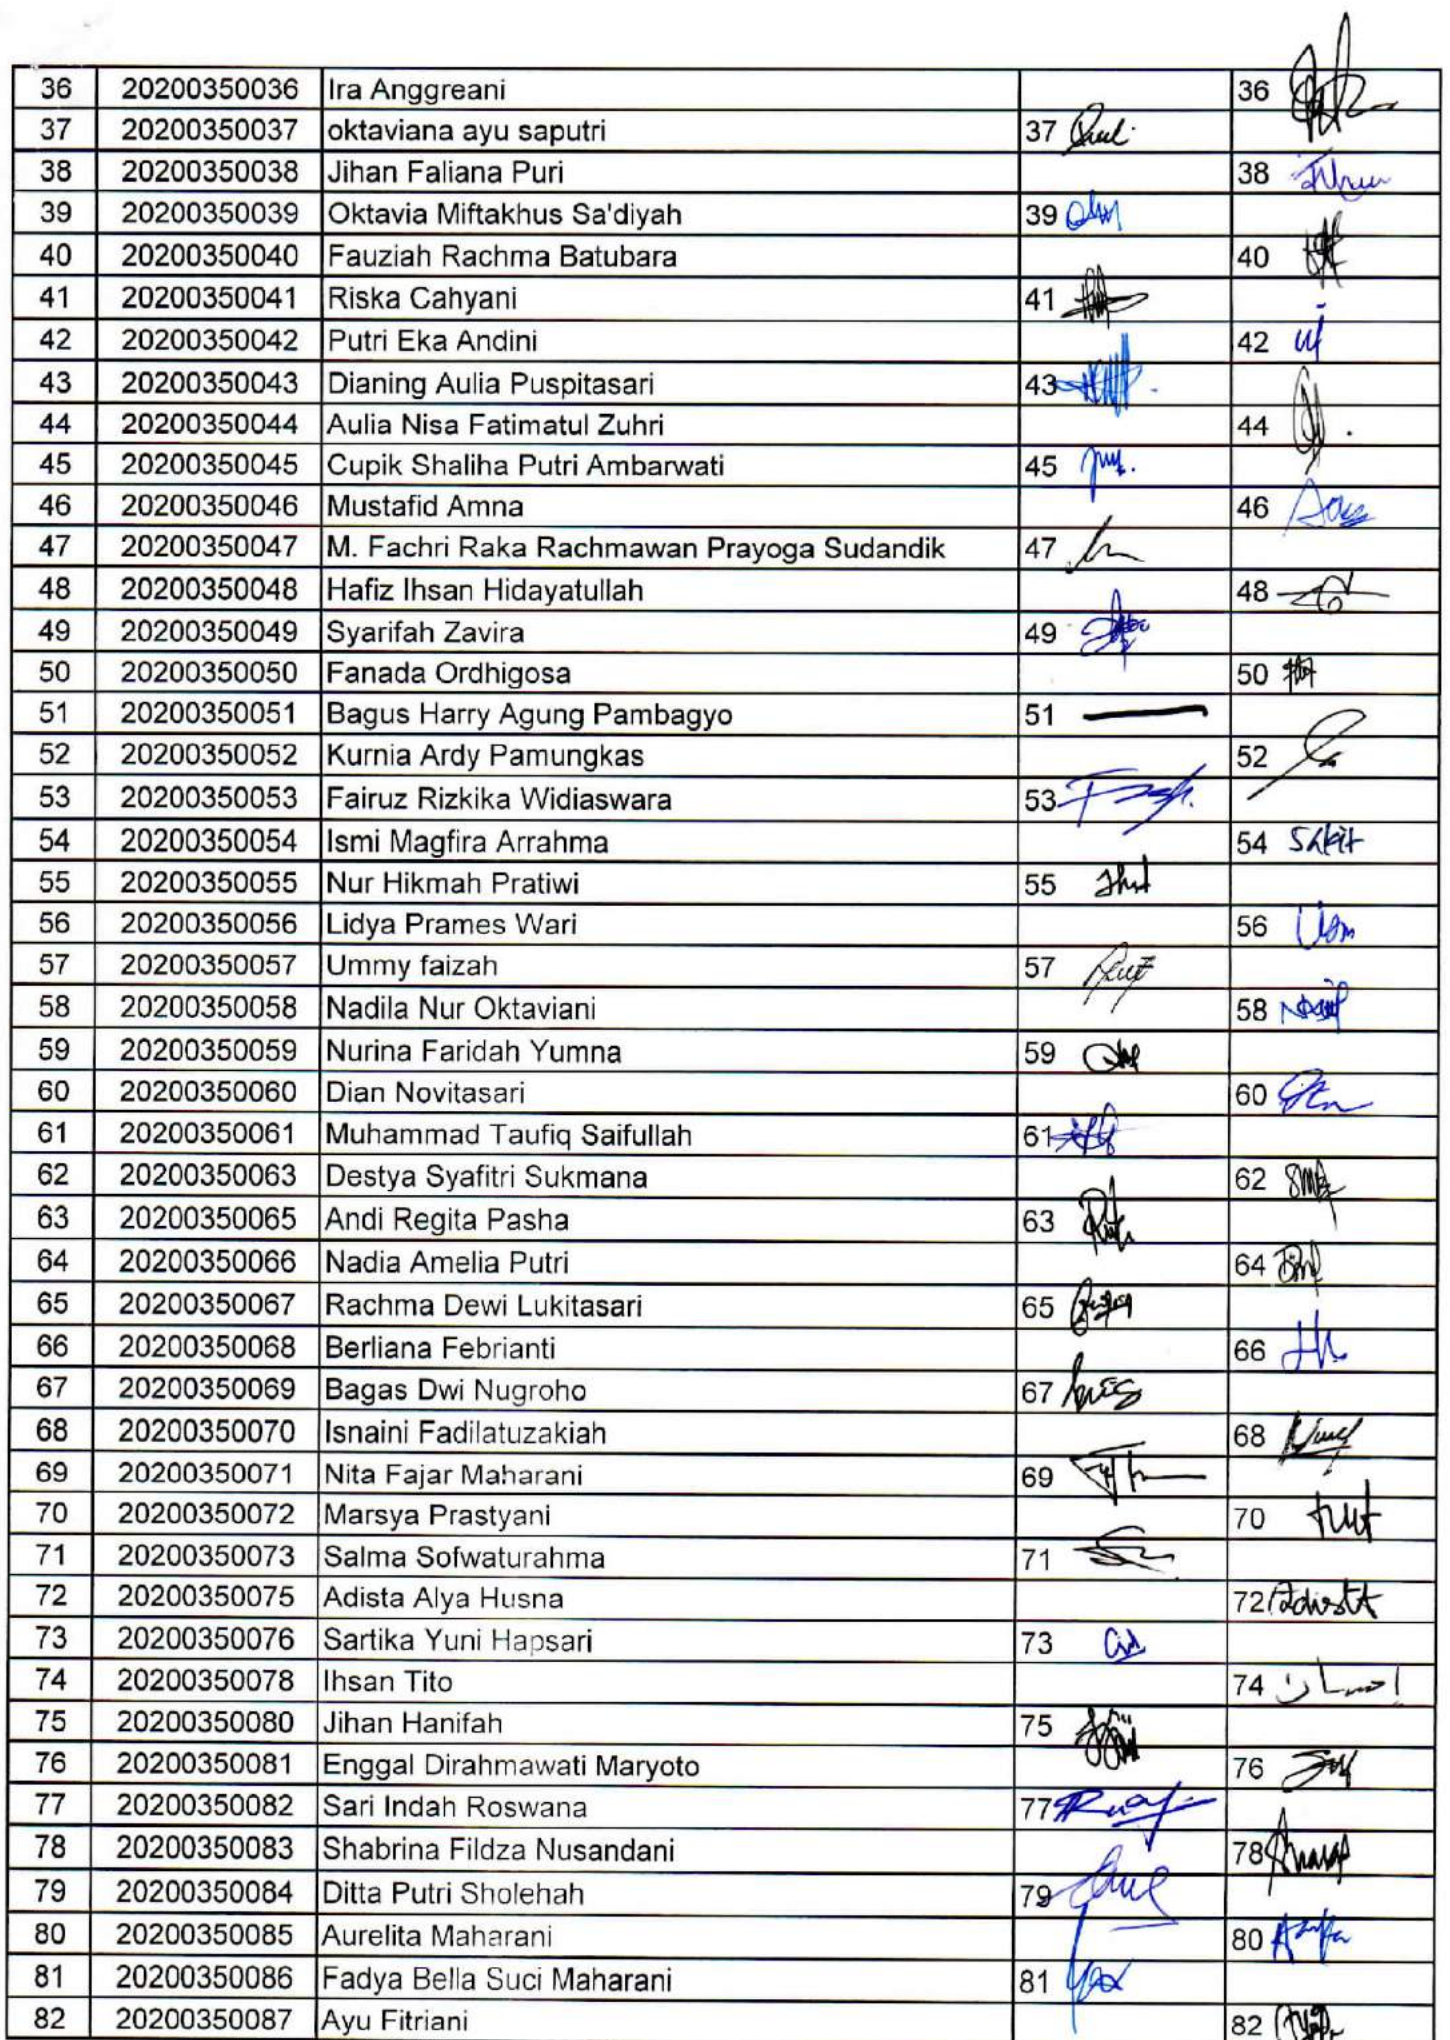 36 20200350036 Ira Anggreani 36
37 20200350037 oktaviana ayu saputri 37
38 20200350038 Jihan Faliana Puri 38
39 20200350039 Oktavia Miftakhus Sa'diyah 39
40 20200350040 Fauziah Rachma Batubara 40
41 20200350041 Riska Cahyani 41
42 20200350042 Putri Eka Andini 42
43 20200350043 Dianing Aulia Puspitasari 43
44 20200350044 Aulia Nisa Fatimatul Zuhri 44
45 20200350045 Cupik Shaliha Putri Ambarwati 45
46 20200350046 Mustafid Amna 46
47 20200350047 M. Fachri Raka Rachmawan Prayoga Sudandik 47
48 20200350048 Hafiz Ihsan Hidayatullah 48
49 20200350049 Syarifah Zavira 49
50 20200350050 Fanada Ordhigosa 50
51 20200350051 Bagus Harry Agung Pambagyo 51
52 20200350052 Kurnia Ardy Pamungkas 52
53 20200350053 Fairuz Rizkika Widiaswara 53
54 20200350054 Ismi Magfira Arrahma 54 Sakit
55 20200350055 Nur Hikmah Pratiwi 55
56 20200350056 Lidya Prames Wari 56
57 20200350057 Ummy faizah 57
58 20200350058 Nadila Nur Oktaviani 58
59 20200350059 Nurina Faridah Yumna 59
60 20200350060 Dian Novitasari 60
61 20200350061 Muhammad Taufiq Saifullah 61
62 20200350063 Destya Syafitri Sukmana 62
63 20200350065 Andi Regita Pasha 63
64 20200350066 Nadia Amelia Putri 64
65 20200350067 Rachma Dewi Lukitasari 65
66 20200350068 Berliana Febrianti 66
67 20200350069 Bagas Dwi Nugroho 67
68 20200350070 Isnaini Fadilatuzakiah 68
69 20200350071 Nita Fajar Maharani 69
70 20200350072 Marsya Prastyani 70
71 20200350073 Salma Sofwaturahma 71
72 20200350075 Adista Alya Husna 72 Adista
73 20200350076 Sartika Yuni Hapsari 73
74 20200350078 Ihsan Tito 74 إحسان
75 20200350080 Jihan Hanifah 75
76 20200350081 Enggal Dirahmawati Maryoto 76
77 20200350082 Sari Indah Roswana 77
78 20200350083 Shabrina Fildza Nusandani 78
79 20200350084 Ditta Putri Sholehah 79
80 20200350085 Aurelita Maharani 80
81 20200350086 Fadya Bella Suci Maharani 81
82 20200350087 Ayu Fitriani 82